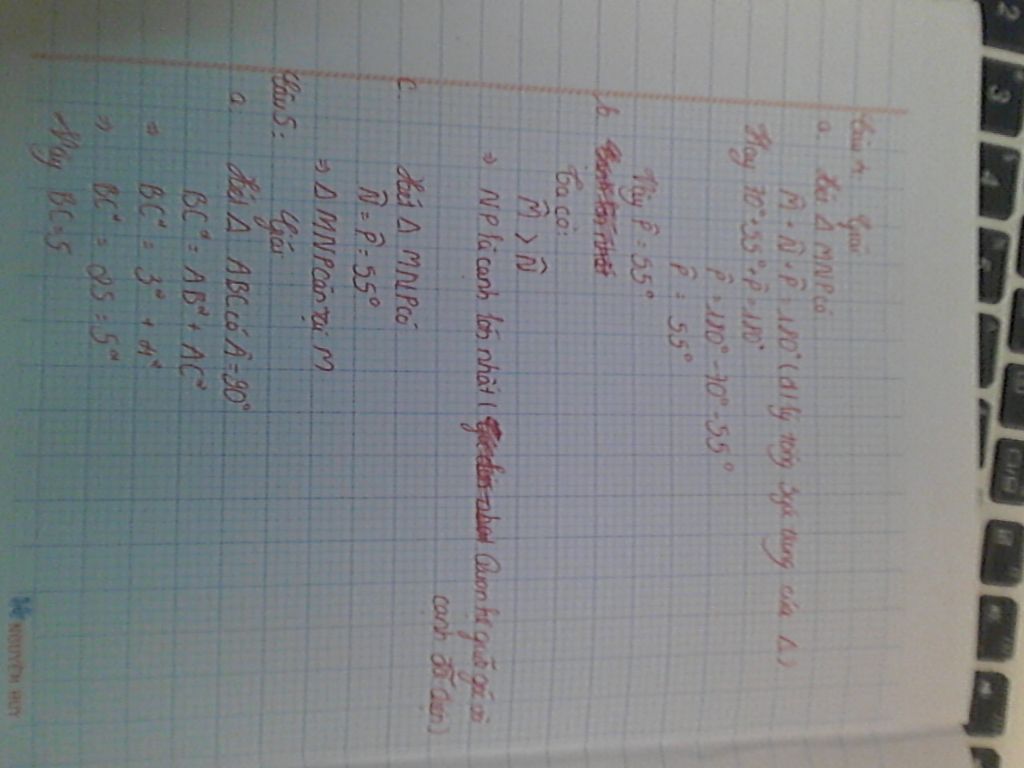 Câu 4: Giải
a. Xét Δ MNP có
M̂ + N̂ + P̂ = 180° (đ/lý tổng 3 góc trong của Δ)
Hay 70° + 55° + P̂ = 180°
P̂ = 180° - 70° - 55°
P̂ = 55°
Vậy P̂ = 55°
b.
Ta có:
M̂ > N̂
⇒ NP là cạnh lớn nhất ( Quan hệ giữa góc và
cạnh đối diện)
c. Xét Δ MNP có
N̂ = P̂ = 55°
⇒ Δ MNP cân tại M
Câu 5: Giải
a. Xét Δ ABC có Â = 90°
BC² = AB² + AC²
⇒ BC² = 3² + 4²
⇒ BC² = 25 = 5²
Vậy BC = 5
NGUYEN HUY
2
3
4
5